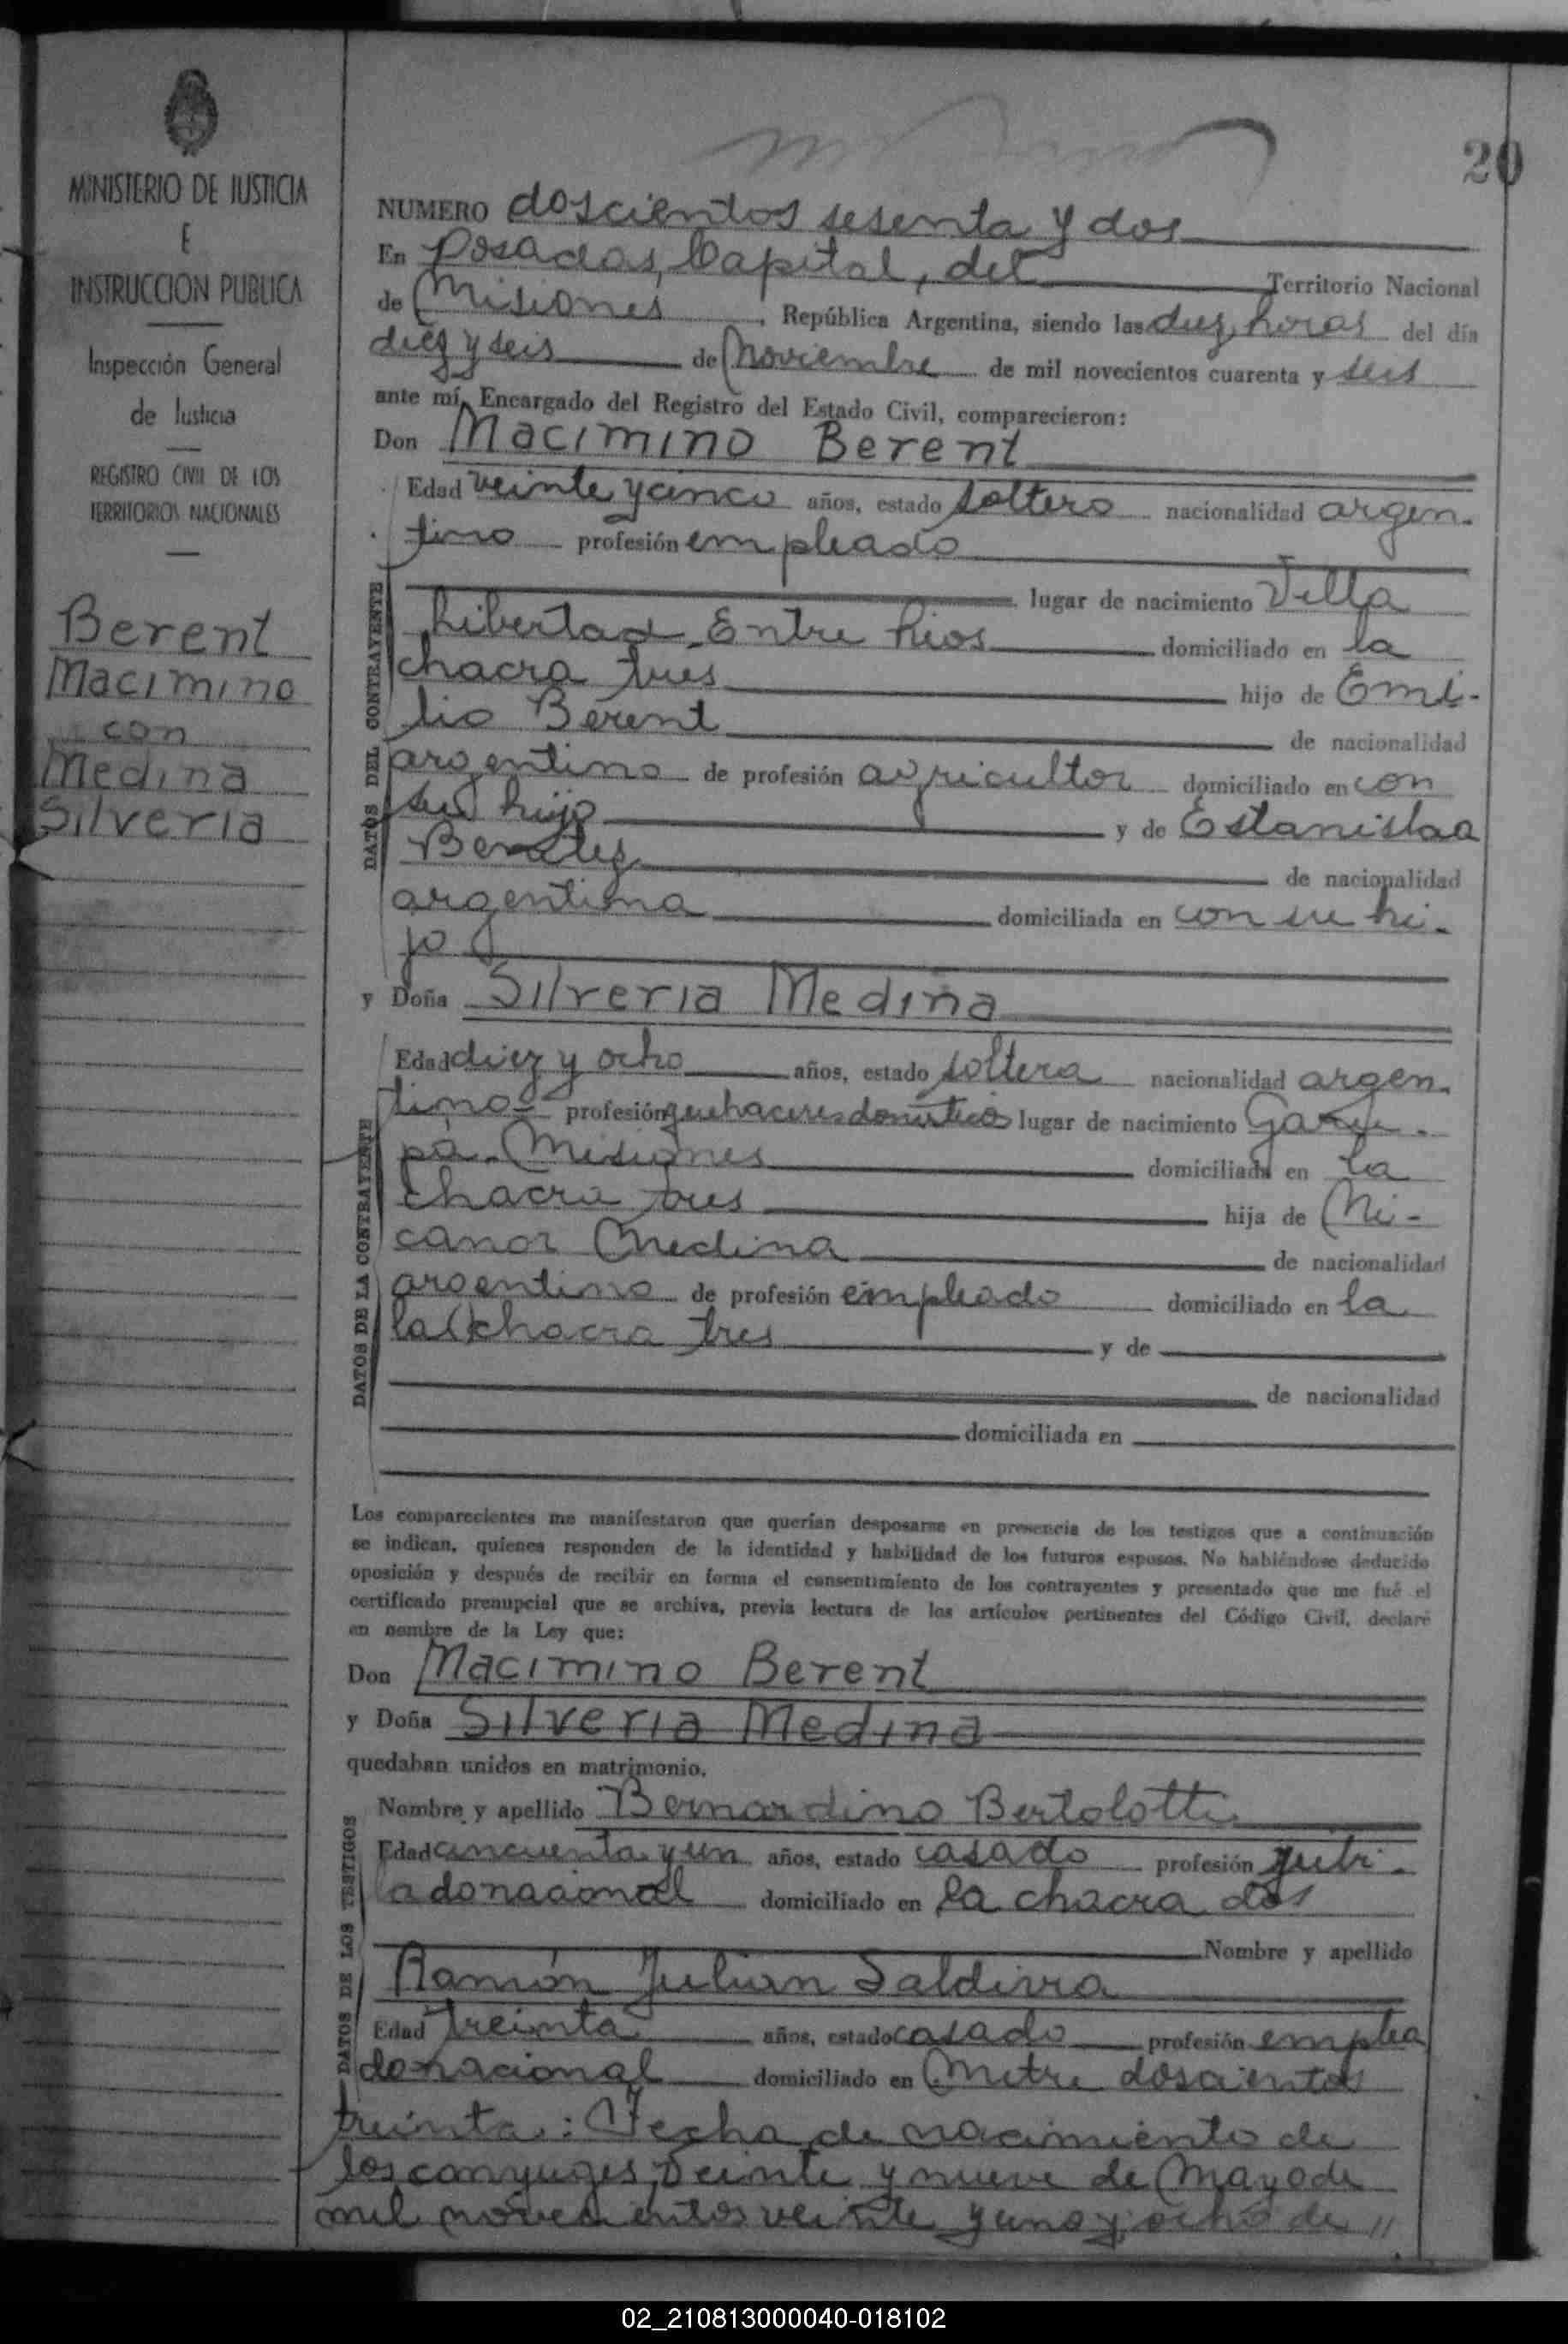 20
MINISTERIO DE JUSTICIA
E
INSTRUCCION PUBLICA
Inspección General
de Justicia
REGISTRO CIVIL DE LOS
TERRITORIOS NACIONALES
Berent
Macimino
con
Medina
Silveria
NUMERO doscientos sesenta y dos
En Posadas, Capital, del Territorio Nacional
de Misiones, República Argentina, siendo las diez horas del día
diez y seis de Noviembre de mil novecientos cuarenta y seis
ante mí, Encargado del Registro del Estado Civil, comparecieron:
Don Macimino Berent
Edad veinte y cinco años, estado soltero nacionalidad argen-
tino profesión empleado
lugar de nacimiento Villa
Libertad, Entre Rios domiciliado en la
chacra tres hijo de Emi-
lio Berent de nacionalidad
argentino de profesión agricultor domiciliado en con
su hijo y de Estanislaa
de nacionalidad
argentina domiciliada en con su hi-
jo
y Doña Silveria Medina
Edad diez y ocho años, estado soltera nacionalidad argen-
tino profesión quehaceres domésticos lugar de nacimiento Garu-
pá-Misiones domiciliada en la
chacra tres hija de Ni-
canor Medina de nacionalidad
argentino de profesión empleado domiciliado en la
la chacra tres y de
de nacionalidad
domiciliada en
DATOS DEL CONTRAYENTE
DATOS DE LA CONTRAYENTE
Los comparecientes me manifestaron que querían desposarse en presencia de los testigos que a continuación
se indican, quienes responden de la identidad y habilidad de los futuros esposos. No habiéndose deducido
oposición y después de recibir en forma el consentimiento de los contrayentes y presentado que me fué el
certificado prenupcial que se archiva, previa lectura de los artículos pertinentes del Código Civil, declaré
en nombre de la Ley que:
Don Macimino Berent
y Doña Silveria Medina
quedaban unidos en matrimonio.
Nombre y apellido Bernardino Bertolotti
Edad cincuenta y un años, estado casado profesión jubi-
lado nacional domiciliado en la chacra dos
Nombre y apellido
Ramón Julian Saldivia
Edad treinta años, estado casado profesión emplea
do nacional domiciliado en Mitre doscientos
DATOS DE LOS TESTIGOS
treinta: Fecha de nacimiento de
los conyuges, Veinte y nueve de Mayo de
mil novecientos veinte y uno y ocho de //
02_210813000040-018102